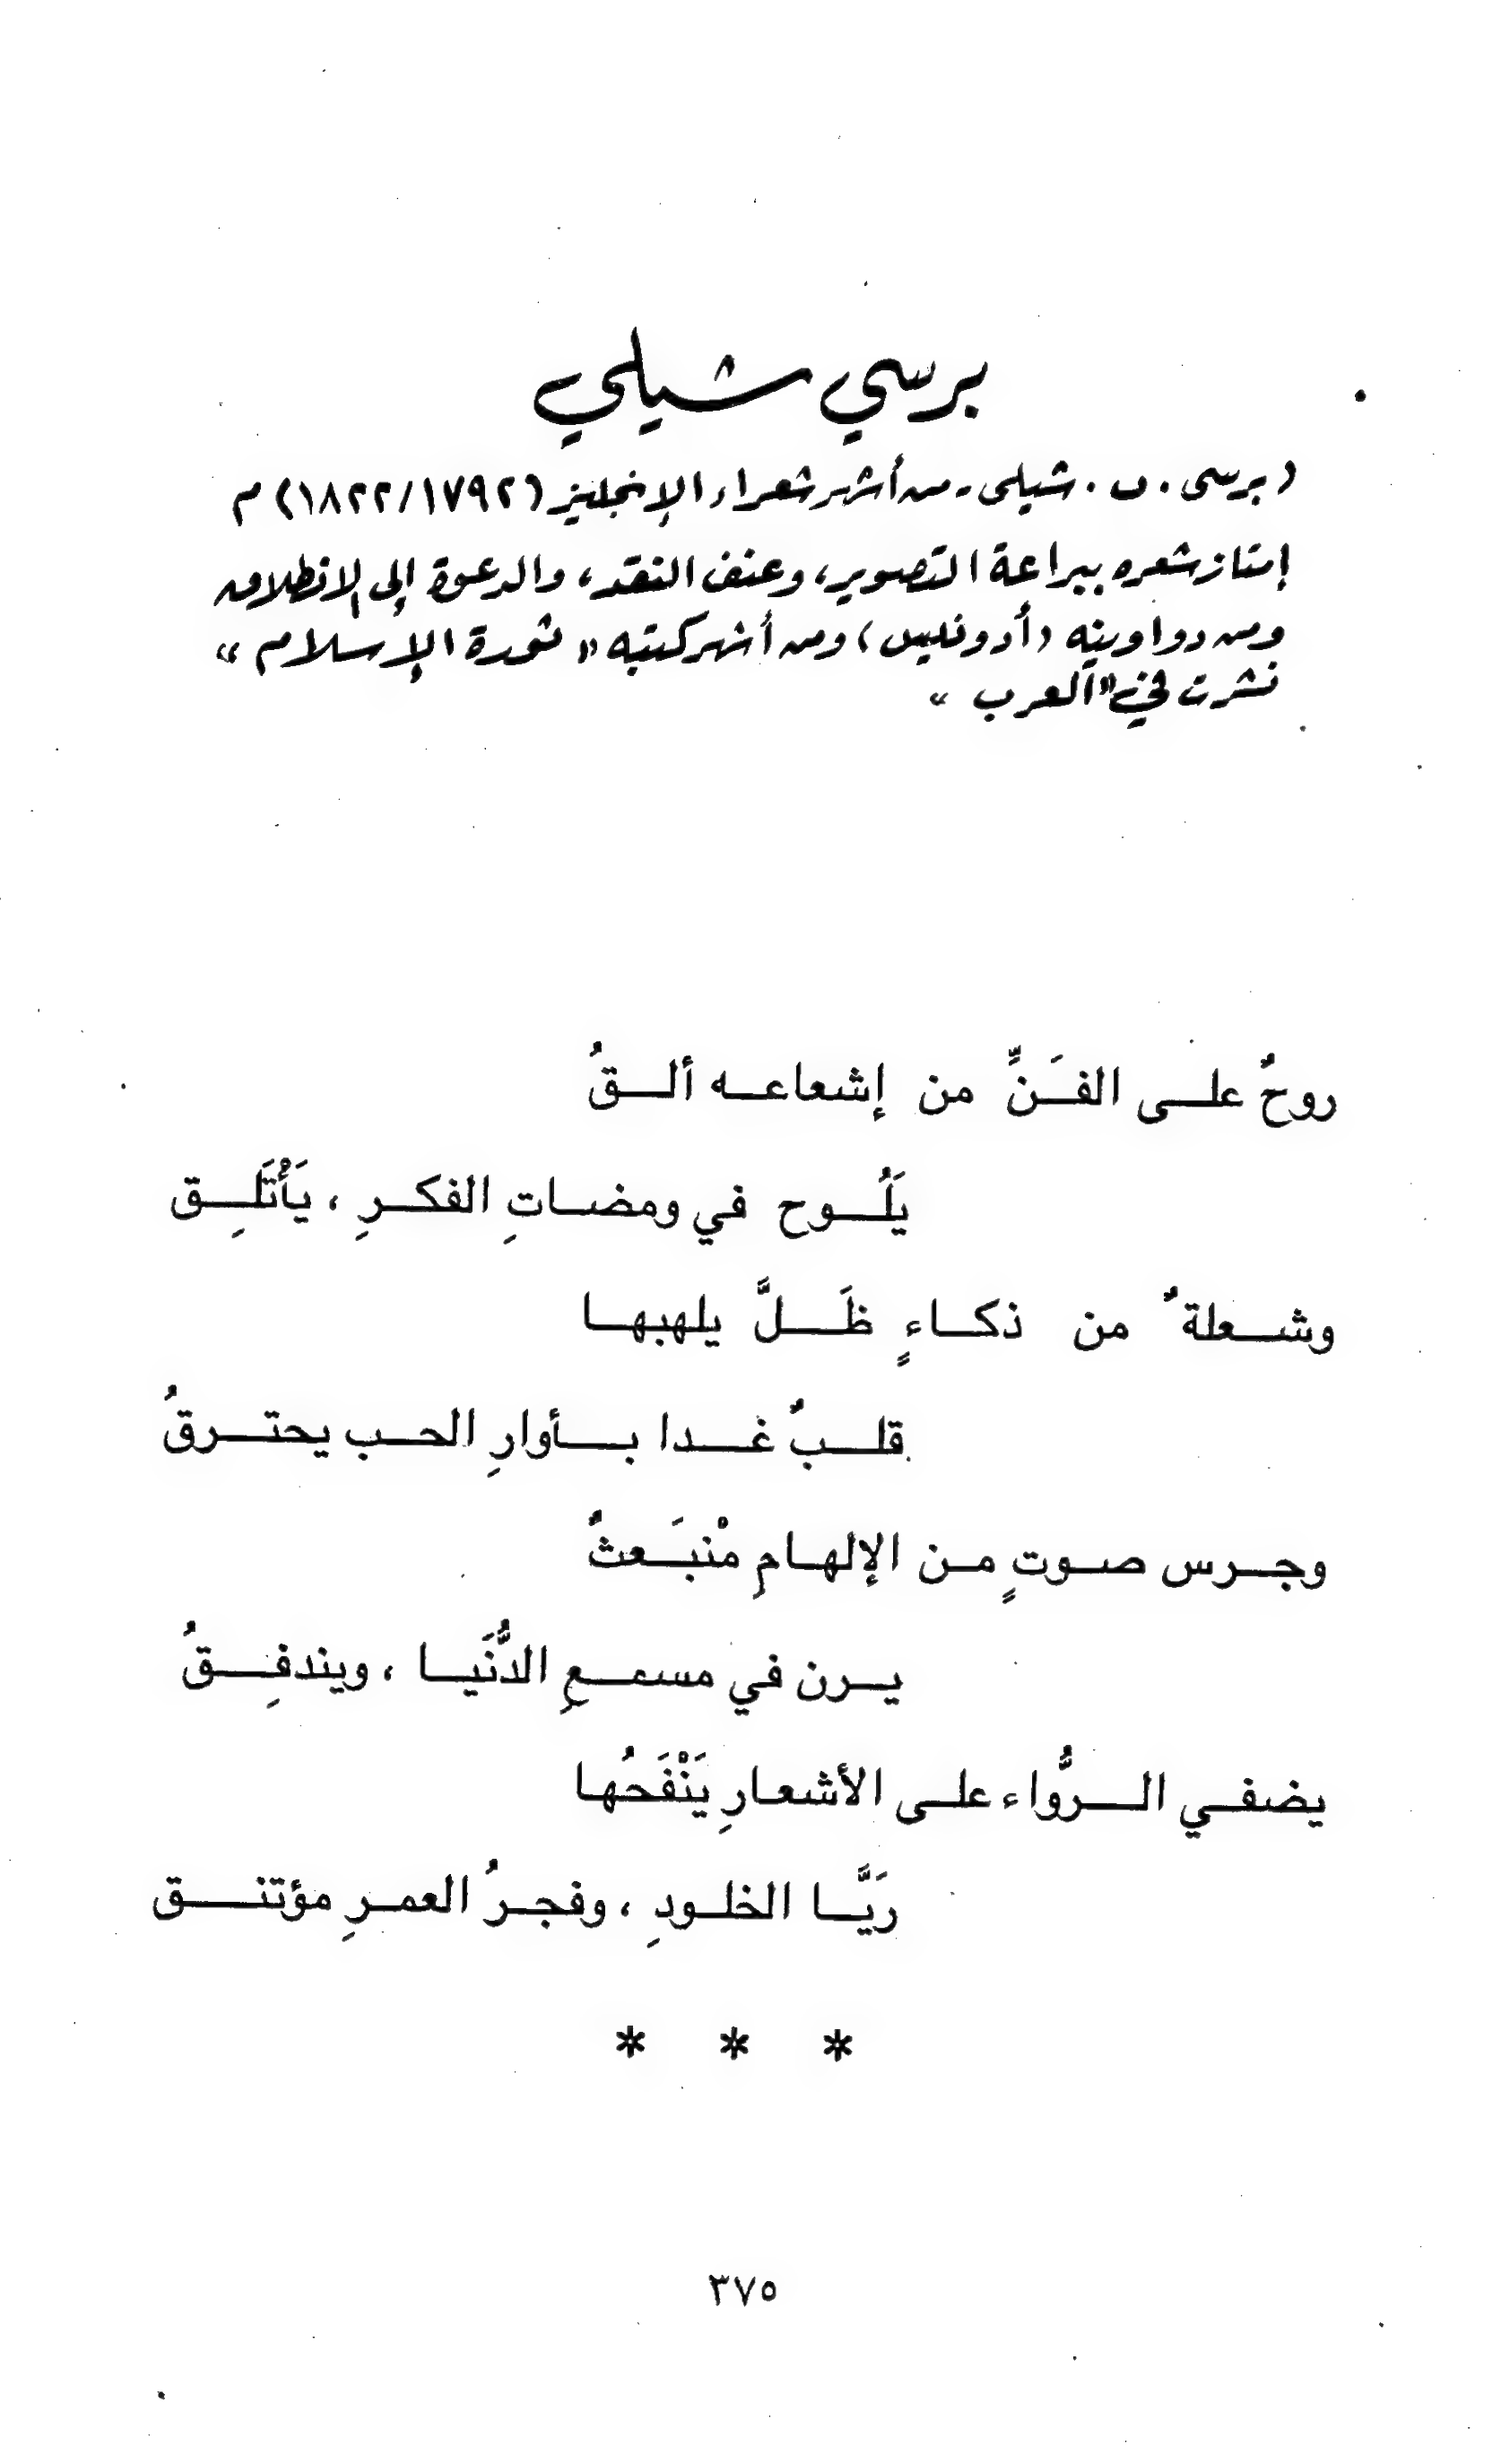 برسي شيلي
(برسى . ب . شيلى - من أشهر شعراء الإنجليز (١٧٩٢/١٨٢٢) م
إمتاز شعره ببراعة التصوير، وعنف النقد، والدعوة إلى الانطلاق
ومن دواوينه (أدونيس) ومن أشهر كتبه «ثورة الإسلام»
نشرت في «العرب»
روحٌ علـى الفَـنِّ من إشعاعـه ألـقُ
يَلُـوح في ومضـاتِ الفكـرِ ، يَأْتَلِـق
وشـعلةٌ من ذكـاءٍ ظَـلَّ يلهبهـا
قلـبٌ غـدا بـأوارِ الحـب يحتـرقُ
وجـرس صـوتٍ مـن الإلهـامِ مْنبَـعثٌ
يـرن في مسمـعِ الدُّنَيـا ، ويندفِـقُ
يضفـي الـرُّواء علـى الأشعـارِ يَنْفَحُها
رَيَّـا الخلـودِ ، وفجـرُ العمـرِ مؤتنـق
* * *
٣٧٥